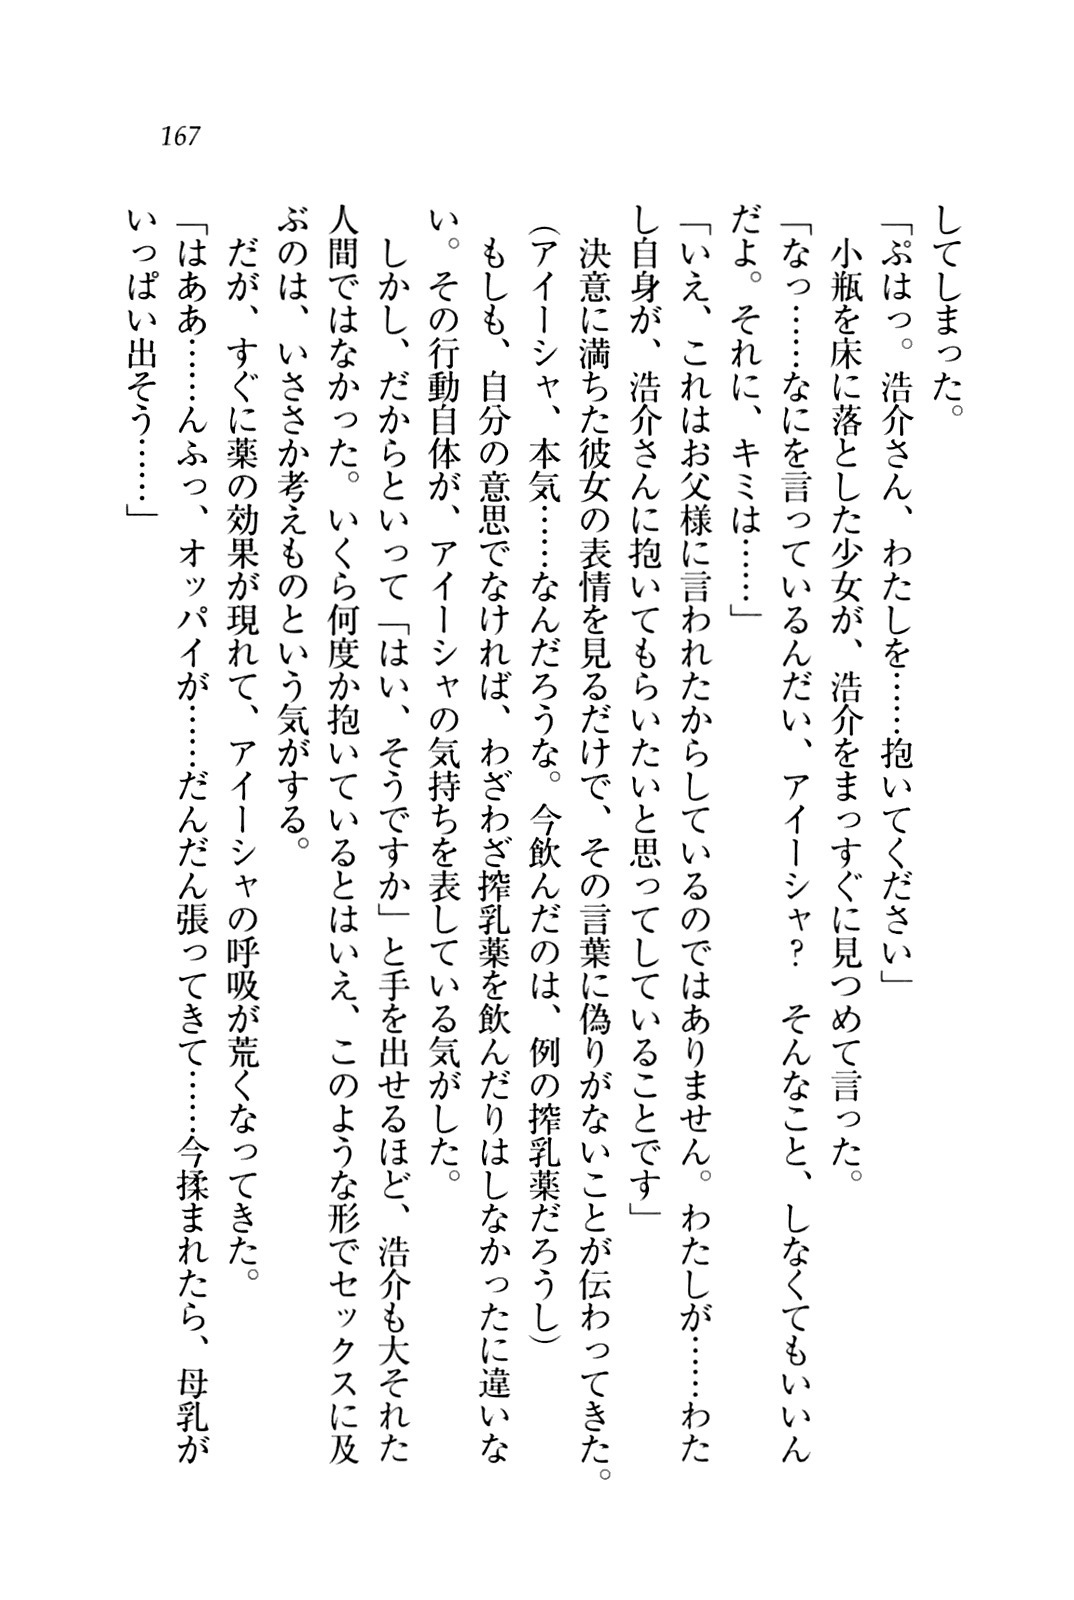 167
してしまった。
「ぷはっ。浩介さん、わたしを……抱いてください」
小瓶を床に落とした少女が、浩介をまっすぐに見つめて言った。
「なっ……なにを言っているんだい、アイーシャ？　そんなこと、しなくてもいいん
だよ。それに、キミは……」
「いえ、これはお父様に言われたからしているのではありません。わたしが……わた
し自身が、浩介さんに抱いてもらいたいと思ってしていることです」
決意に満ちた彼女の表情を見るだけで、その言葉に偽りがないことが伝わってきた。
（アイーシャ、本気……なんだろうな。今飲んだのは、例の搾乳薬だろうし）
もしも、自分の意思でなければ、わざわざ搾乳薬を飲んだりはしなかったに違いな
い。その行動自体が、アイーシャの気持ちを表している気がした。
しかし、だからといって「はい、そうですか」と手を出せるほど、浩介も大それた
人間ではなかった。いくら何度か抱いているとはいえ、このような形でセックスに及
ぶのは、いささか考えものという気がする。
だが、すぐに薬の効果が現れて、アイーシャの呼吸が荒くなってきた。
「はああ……んふっ、オッパイが……だんだん張ってきて……今揉まれたら、母乳が
いっぱい出そう……」